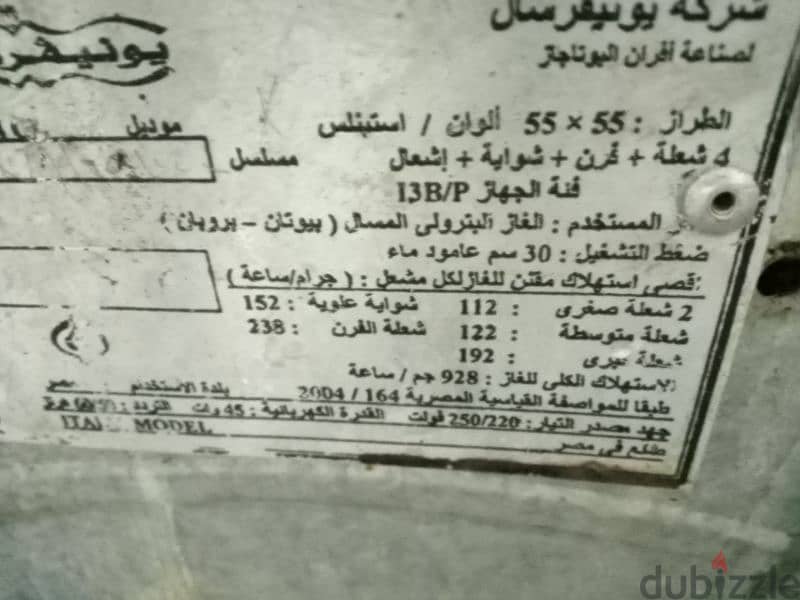 شركة يونيفرسال
لصناعة أفران البوتاجاز
الطراز : 55 × 55 ألوان / استبنلس
موديل
4 شعلة + فرن + شواية + إشعال
مسلسل
فئة الجهاز I3B/P
المستخدم : الغاز البترولى المسال ( بيوتان - بروبان )
ضغط التشغيل : 30 سم عامود ماء
أقصى استهلاك مقنن للغاز لكل مشعل : ( جرام/ساعة )
2 شعلة صغرى : 112 شواية علوية : 152
شعلة متوسطة : 122 شعلة الفرن : 238
شعلة كبرى : 192
الاستهلاك الكلى للغاز : 928 جم / ساعة
طبقا للمواصفة القياسية المصرية 164 / 2004 بلدة الاستخدام : مصر
جهد مصدر التيار : 250/220 فولت القدرة الكهربائية : 45 وات التردد :
صنع فى مصر
MODEL
dubizzle